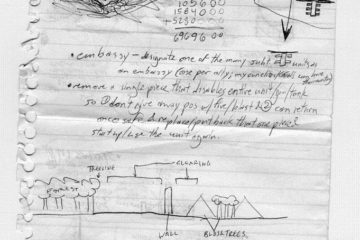 105600
1584000
+5280—00
696960 00
• embassy - designate one of the many subt. units as
an embassy (one per ally,
• remove a single piece that disables entire unit/y-tank
so I don't give away pos w/ fire/blast & can return
once safe & replace/put back that one piece &
start up/use the unit again.
TREELINE
CLEARING
FOREST
WALL
BLDG TREES